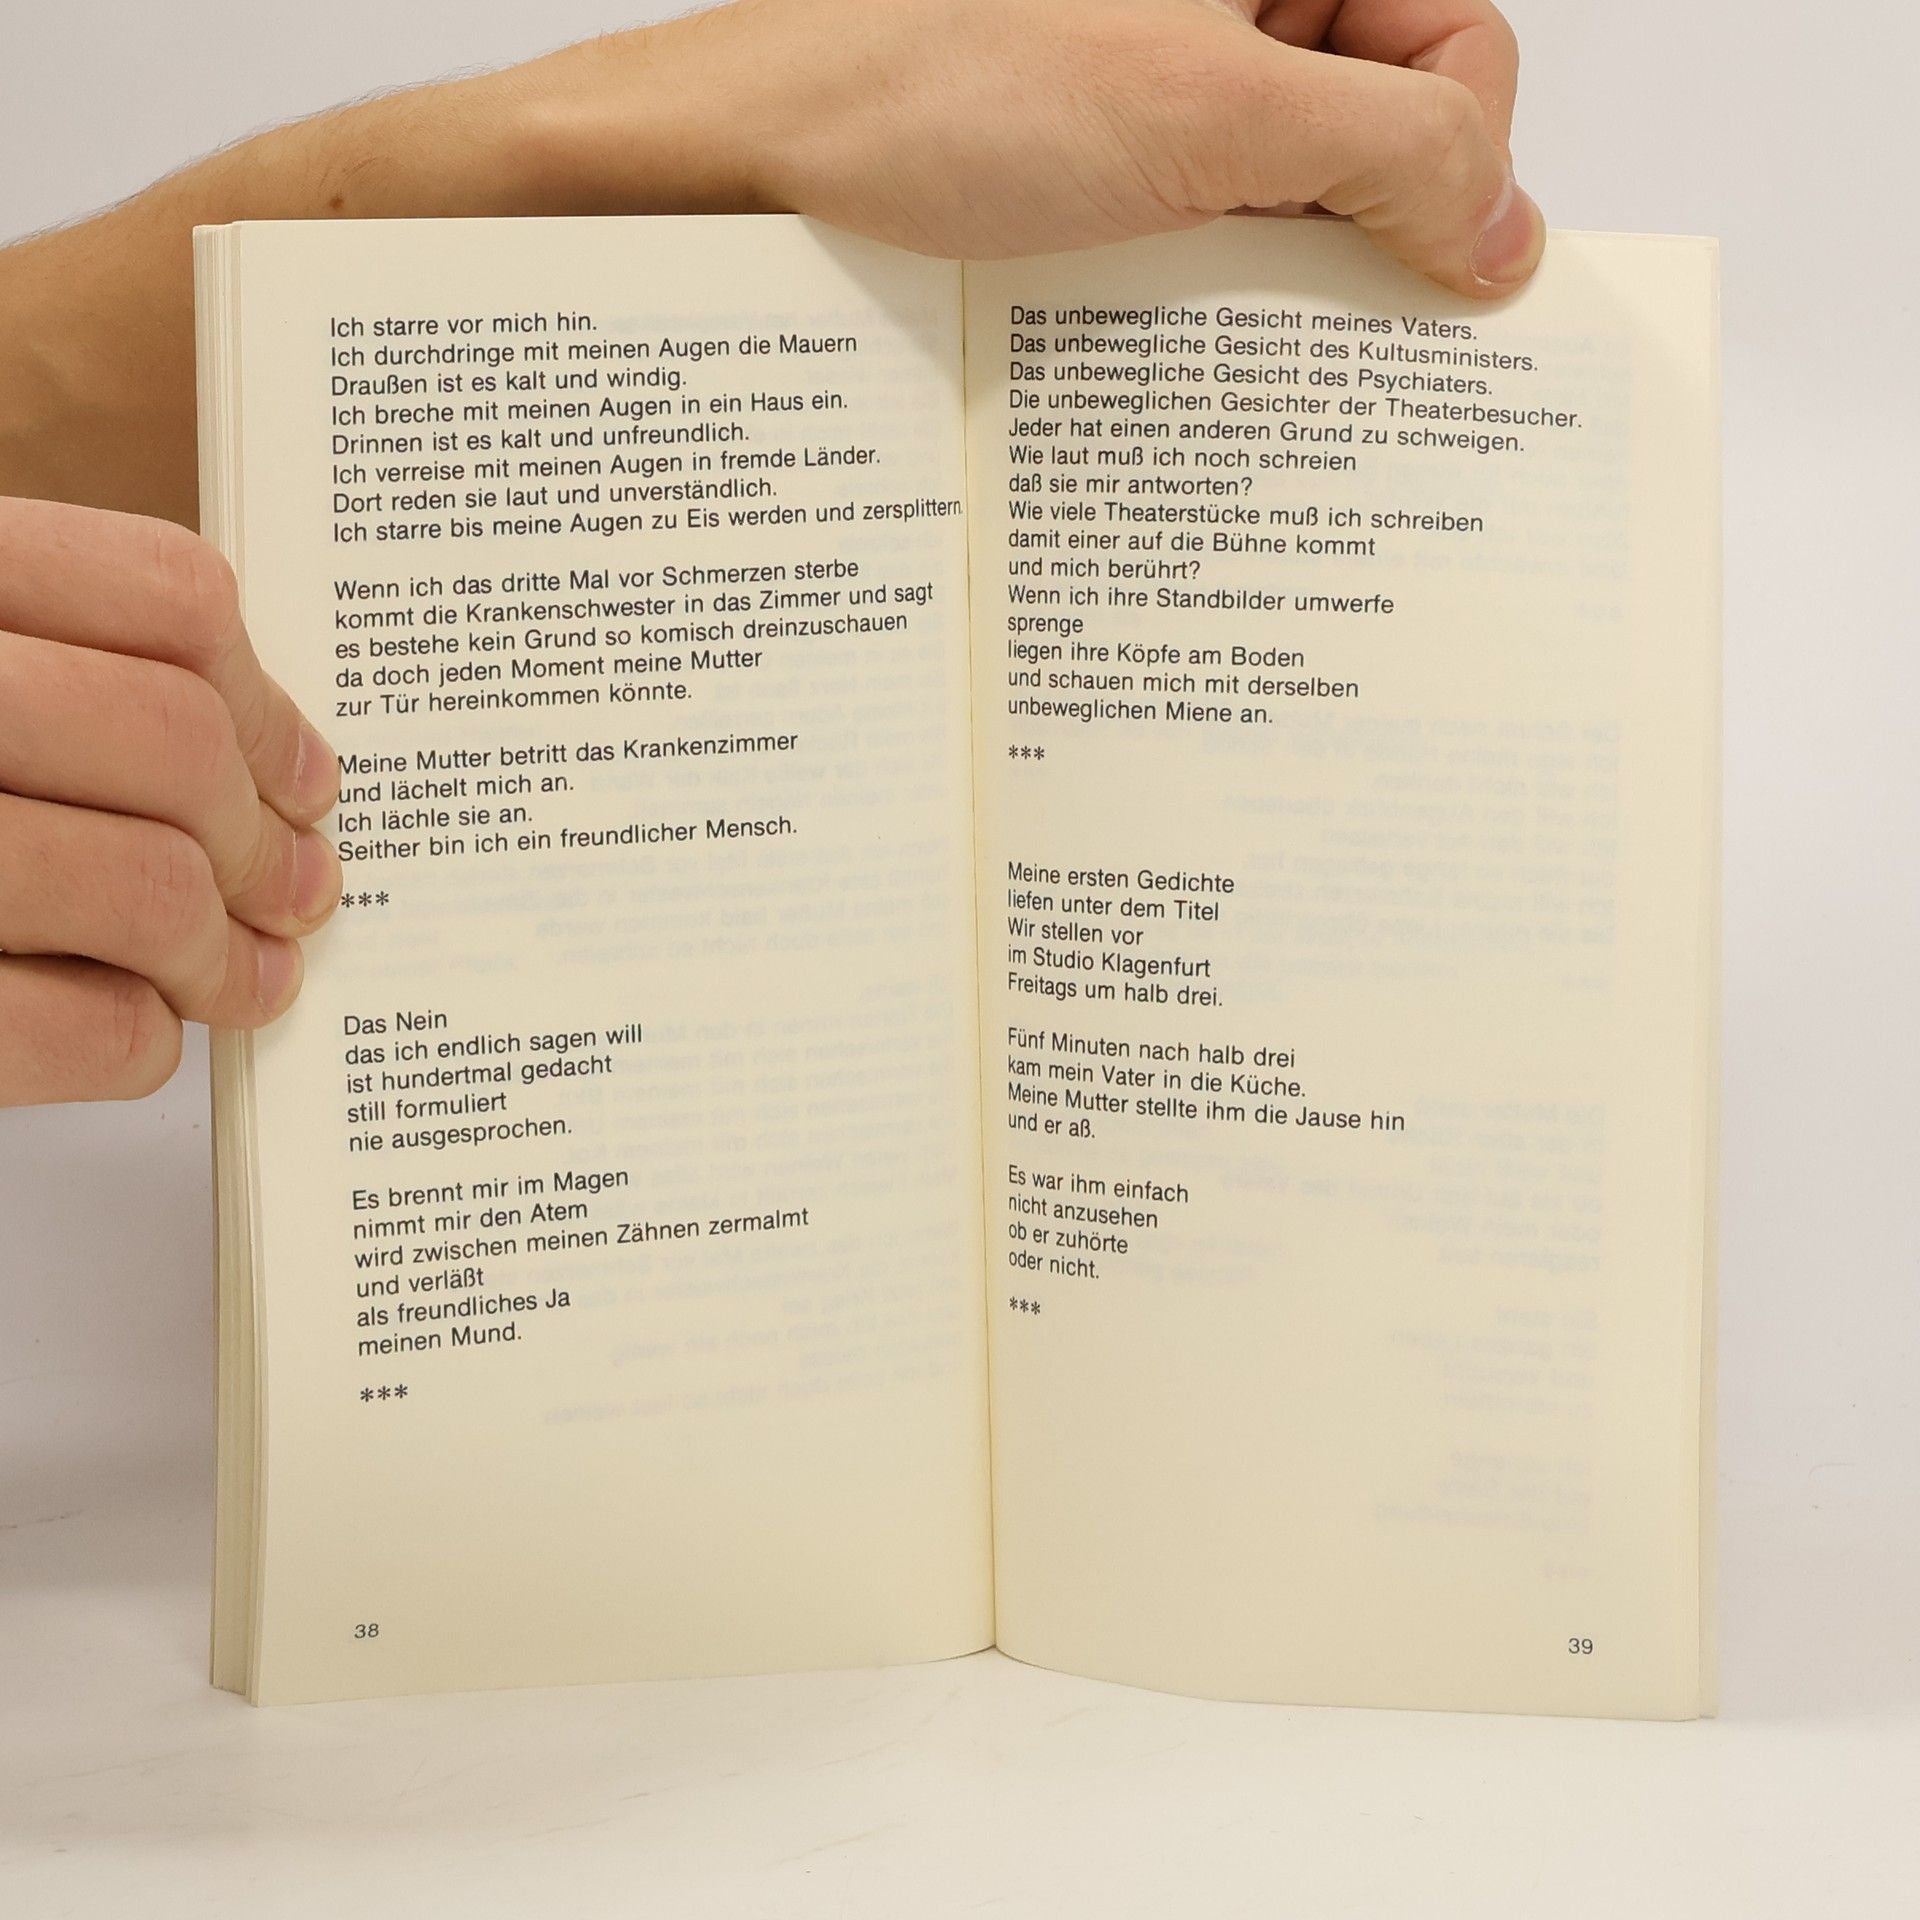 Ich starre vor mich hin.
Ich durchdringe mit meinen Augen die Mauern
Draußen ist es kalt und windig.
Ich breche mit meinen Augen in ein Haus ein.
Drinnen ist es kalt und unfreundlich.
Ich verreise mit meinen Augen in fremde Länder.
Dort reden sie laut und unverständlich.
Ich starre bis meine Augen zu Eis werden und zersplittern.
Wenn ich das dritte Mal vor Schmerzen sterbe
kommt die Krankenschwester in das Zimmer und sagt
es bestehe kein Grund so komisch dreinzuschauen
da doch jeden Moment meine Mutter
zur Tür hereinkommen könnte.
Meine Mutter betritt das Krankenzimmer
und lächelt mich an.
Ich lächle sie an.
Seither bin ich ein freundlicher Mensch.
***
Das Nein
das ich endlich sagen will
ist hundertmal gedacht
still formuliert
nie ausgesprochen.
Es brennt mir im Magen
nimmt mir den Atem
wird zwischen meinen Zähnen zermalmt
und verläßt
als freundliches Ja
meinen Mund.
***
38
Das unbewegliche Gesicht meines Vaters.
Das unbewegliche Gesicht des Kultusministers.
Das unbewegliche Gesicht des Psychiaters.
Die unbeweglichen Gesichter der Theaterbesucher.
Jeder hat einen anderen Grund zu schweigen.
Wie laut muß ich noch schreien
daß sie mir antworten?
Wie viele Theaterstücke muß ich schreiben
damit einer auf die Bühne kommt
und mich berührt?
Wenn ich ihre Standbilder umwerfe
sprenge
liegen ihre Köpfe am Boden
und schauen mich mit derselben
unbeweglichen Miene an.
***
Meine ersten Gedichte
liefen unter dem Titel
Wir stellen vor
im Studio Klagenfurt
Freitags um halb drei.
Fünf Minuten nach halb drei
kam mein Vater in die Küche.
Meine Mutter stellte ihm die Jause hin
und er aß.
Es war ihm einfach
nicht anzusehen
ob er zuhörte
oder nicht.
***
39